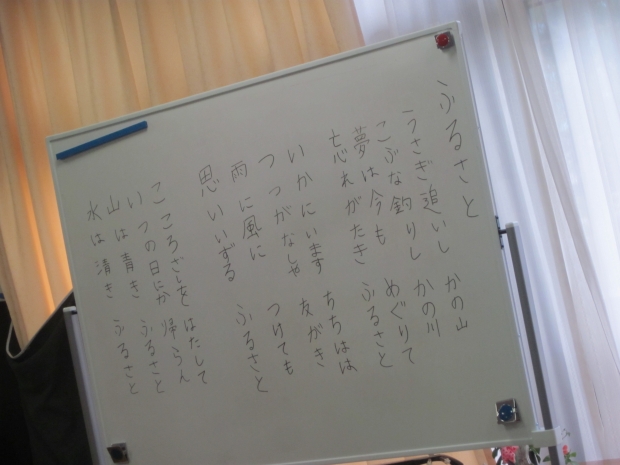 ふるさと
うさぎ追いし　かの山
こぶな釣りし　かの川
夢は今も　めぐりて
忘れがたき　ふるさと
いかにいます　ちちはは
つつがなしや　友がき
雨に風に　つけても
思いいずる　ふるさと
こころざしを　はたして
いつの日にか　帰らん
山は青き　ふるさと
水は清き　ふるさと